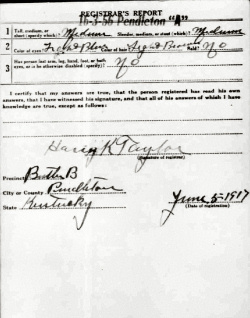 REGISTRAR'S REPORT
16-3-56 Pendleton "A"
1 Tall, medium, or short (specify which)? Medium Slender, medium, or stout (which)? Medium
2 Color of eyes? Color of hair? Bald? No
3 Has person lost arm, leg, hand, foot, or both eyes, or is he otherwise disabled (specify)? No
I certify that my answers are true, that the person registered has read his own answers, that I have witnessed his signature, and that all of his answers of which I have knowledge are true, except as follows:
Taylor
(Signature of registrar)
Precinct Butler B
City or County Pendleton
State Kentucky
June 5-1917
(Date of registration)